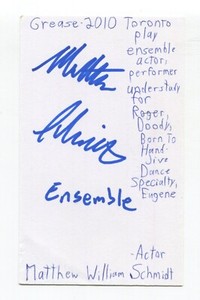 Grease-2010 Toronto
play
ensemble
actor;
performer
understudy
for
Roger,
Doody;
Born To
Hand-
Jive
Dance
Specialty;
Eugene
Ensemble
-Actor
Matthew William Schmidt